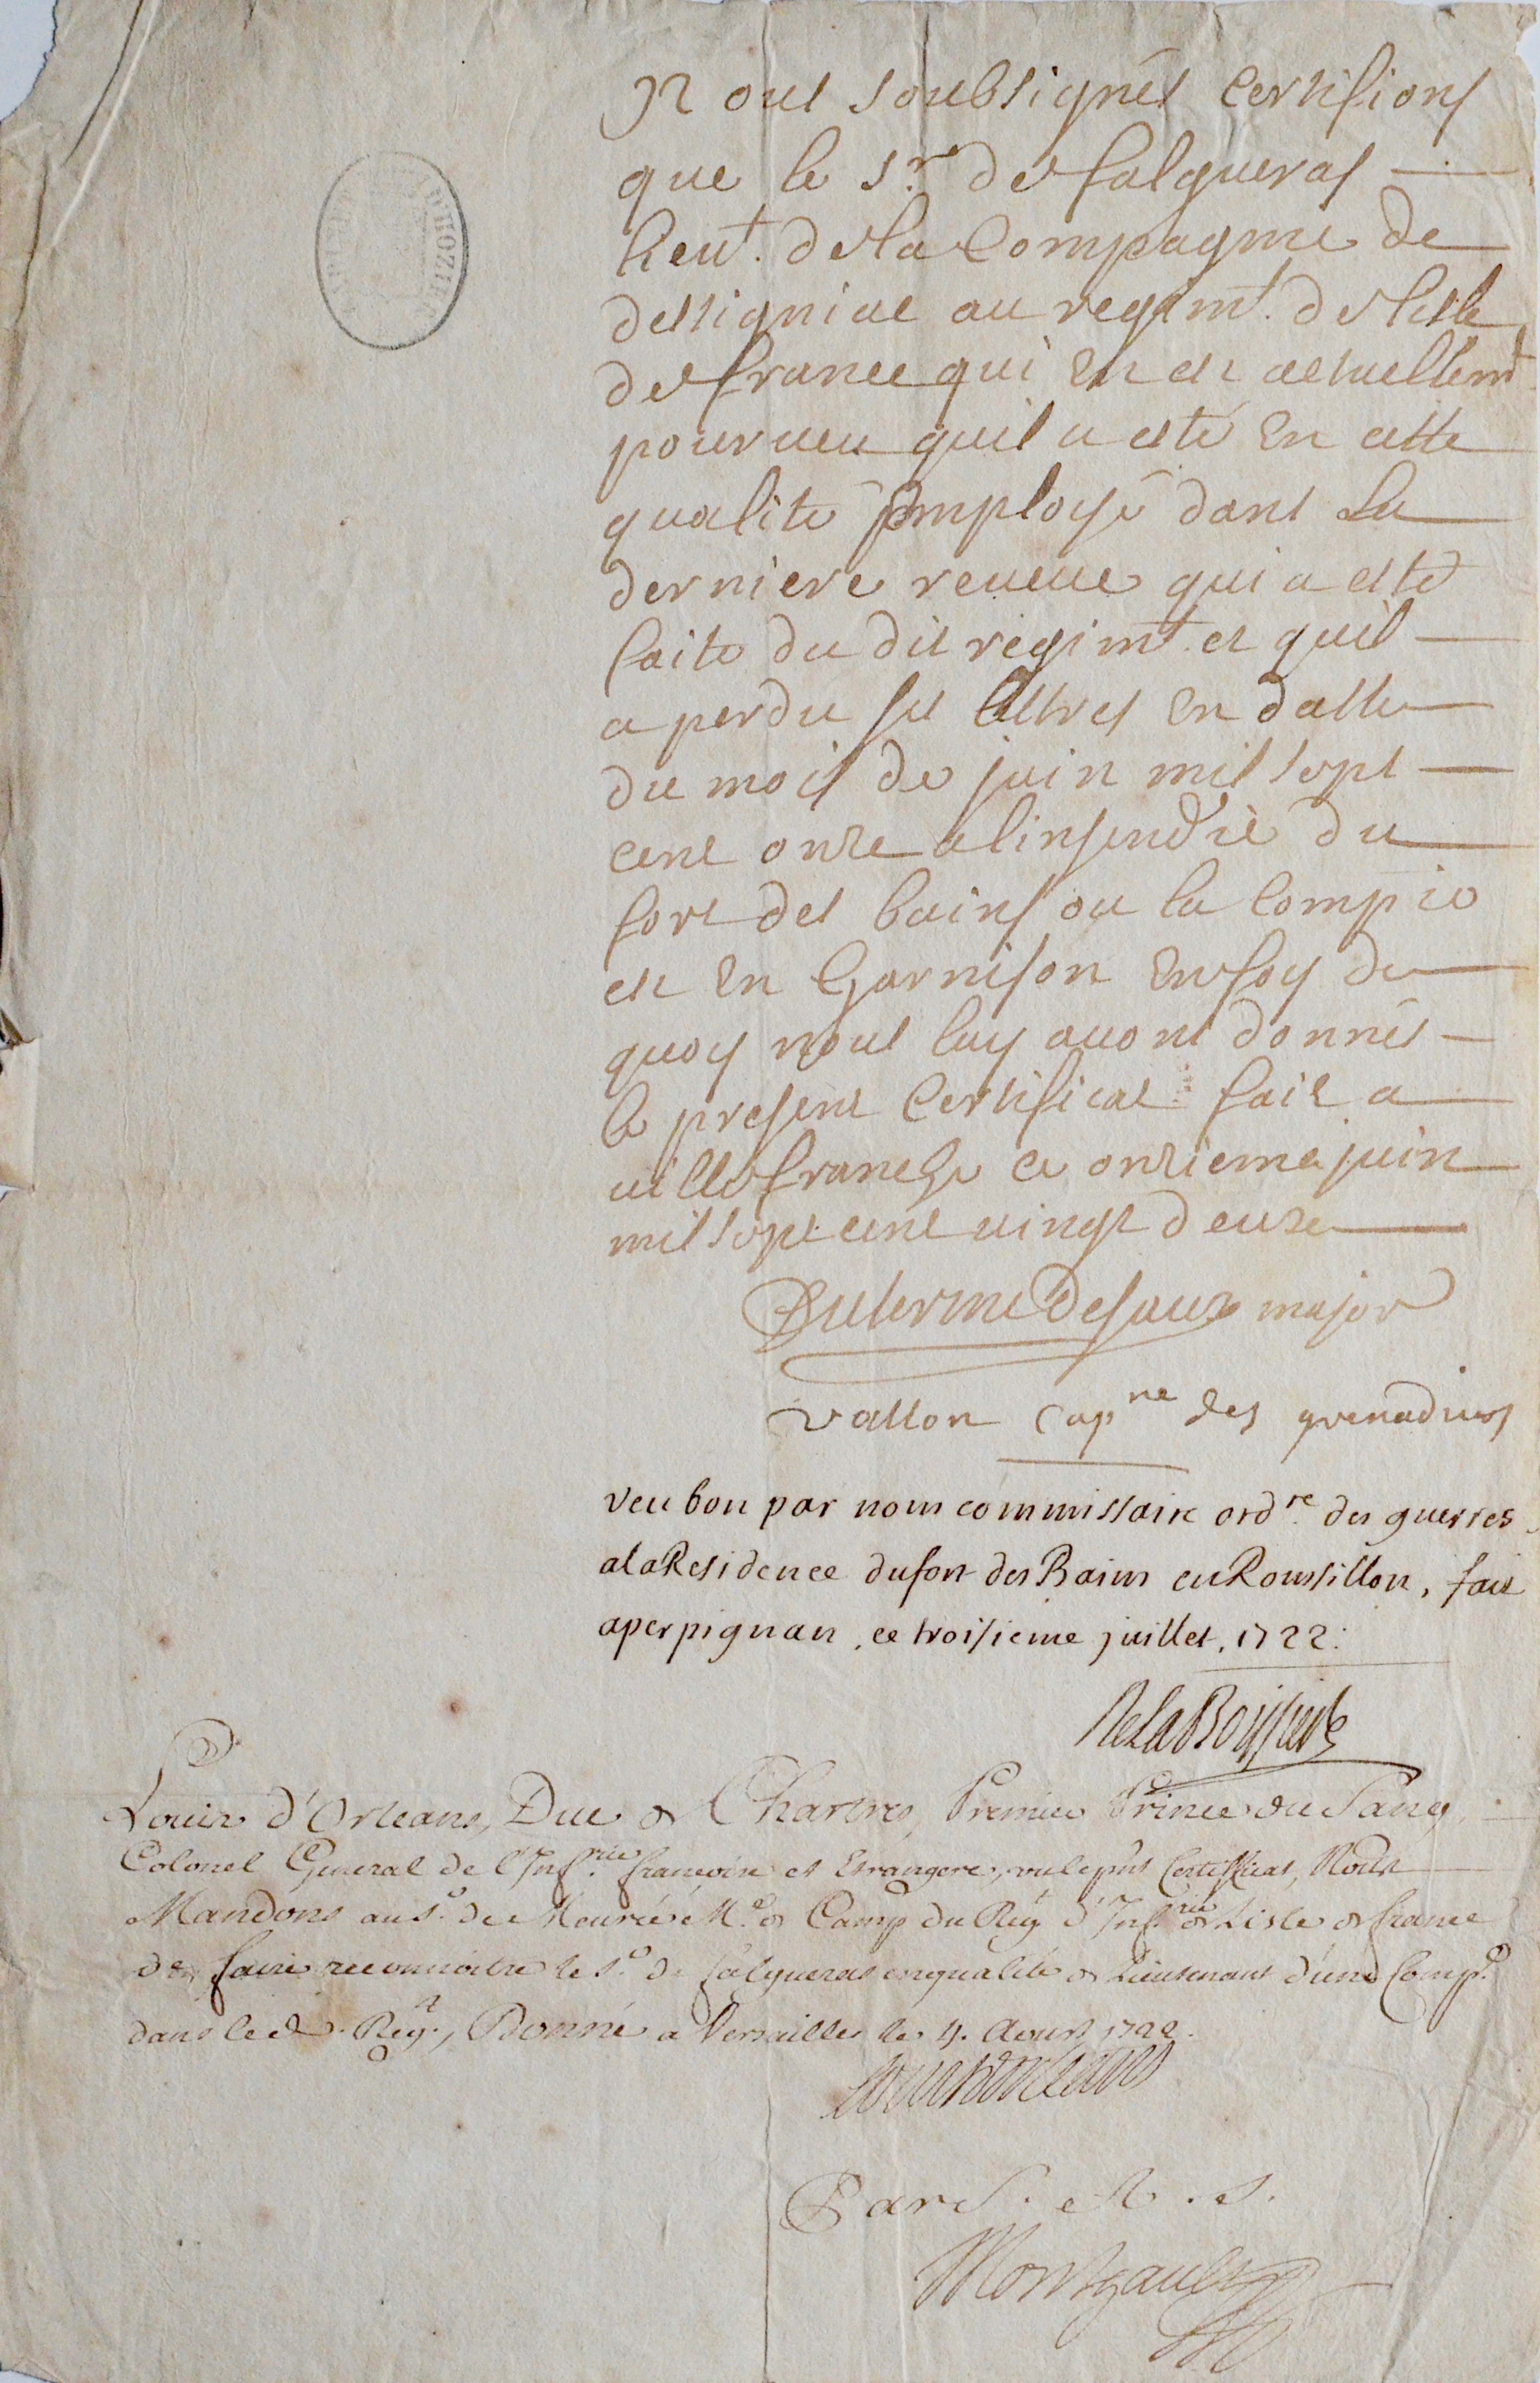 D'HOZIER
Nous soubsignés Certifions
que le Sr. de falgueras
lieut. de la Compagnie de
dessigniac au regimt. de lisle
de france qui En est actuellemt.
pourveu quil a esté En cette
qualité Employé dans La
derniere reveue qui a esté
faite du dit regimt. et quil
a perdu ses lettres En datte
du mois de juin mil sept
cent onze a linsendie du
fort des bains ou la Compie
est En Garnison En foy de
quoy nous luy avons donnés
le present Certificat fait a
villefranche ce onzieme juin
mil sept cent vingt deuze
major
vallon Capne des grenadiers
veu bon par nous commissaire ordre. des guerres
a la Residence du fort des Bains en Roussillon, fait
a perpignan, ce troisieme juillet, 1722.
De la Boissiere
Louis d'Orleans, Duc de Chartres, Premier Prince du Sang,
Colonel General de l'Infrie. francoise et Etrangere, vu le pnt Certifficat, Nous
Mandons au S. de Me. de Camp du Regt d'Infrie. de Lisle de france
de faire reconnoitre le S. de falgueras en qualité de Lieutenant d'une Compe.
dans led. Regt., Donné a Versailles le 4. Aoust 1722.
Louis d'orleans
Par S. A. S.